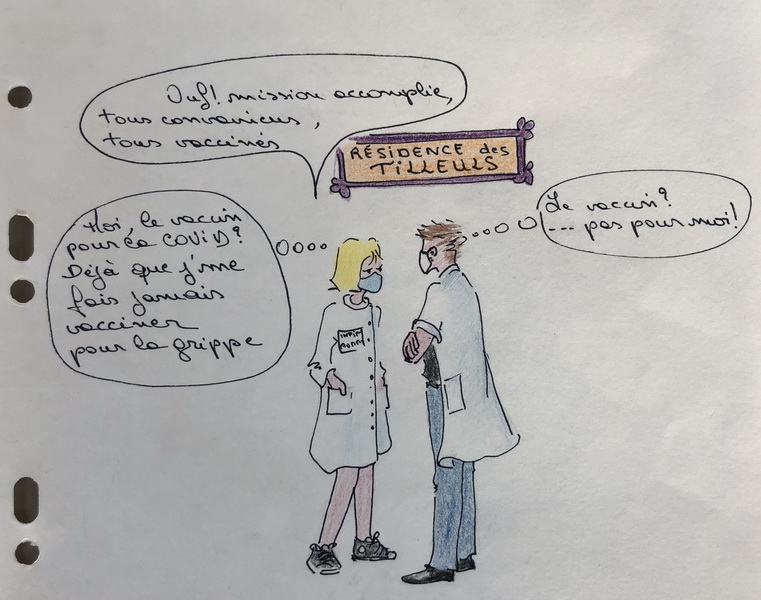 Ouf! mission accomplie,
tous convaincus,
tous vaccinés
RÉSIDENCE des
TiLLEULS
Le vaccin?
... pas pour moi!
Moi, le vaccin
pour la COViD?
Déjà que j'me
fais jamais
vacciner
pour la grippe